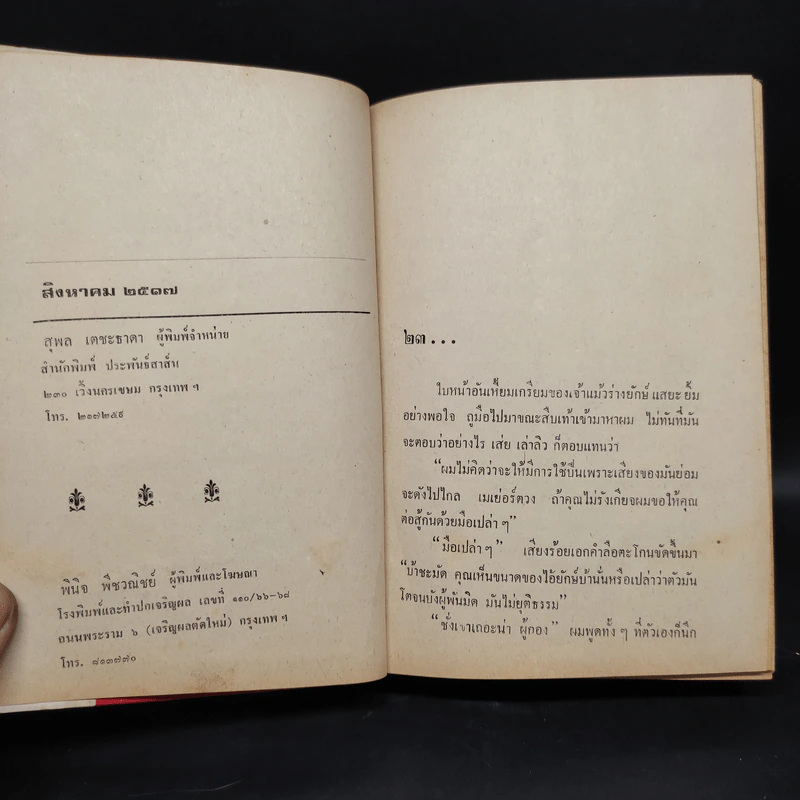 สิงหาคม ๒๕๑๗
สุพล เตชะธาดา ผู้พิมพ์จำหน่าย
สำนักพิมพ์ ประพันธ์สาส์น
๒๓๐ เวิ้งนครเขษม กรุงเทพ ฯ
โทร. ๒๑๗๒๕๙
พินิจ พืชวณิชย์ ผู้พิมพ์และโฆษณา
โรงพิมพ์และทำปกเจริญผล เลขที่ ๑๑๐/๖๖-๖๘
ถนนพระราม ๖ (เจริญผลตัดใหม่) กรุงเทพ ฯ
โทร. ๘๑๓๗๗๐
๒๓...
ใบหน้าอันเหี้ยมเกรียมของเจ้าแม้วร่างยักษ์ แสยะ ยิ้ม
อย่างพอใจ ถูมือไปมาขณะสืบเท้าเข้ามาหาผม ไม่ทันที่มัน
จะตอบว่าอย่างไร เส่ย เล่าลิว ก็ตอบแทนว่า
“ผมไม่คิดว่าจะให้มีการใช้ปืนเพราะเสียงของมันย่อม
จะดังไปไกล เมเย่อร์ตวง ถ้าคุณไม่รังเกียจผมขอให้คุณ
ต่อสู้กันด้วยมือเปล่า ๆ”
“มือเปล่า ๆ” เสียงร้อยเอกคำลือตะโกนขัดขึ้นมา
“บ้าชะมัด คุณเห็นขนาดของไอ้ยักษ์บ้านั่นหรือเปล่าว่าตัวมัน
โตจนบังผู้พันมิด มันไม่ยุติธรรม”
“ชั่งเขาเถอะน่า ผู้กอง” ผมพูดทั้ง ๆ ที่ตัวเองก็นึก